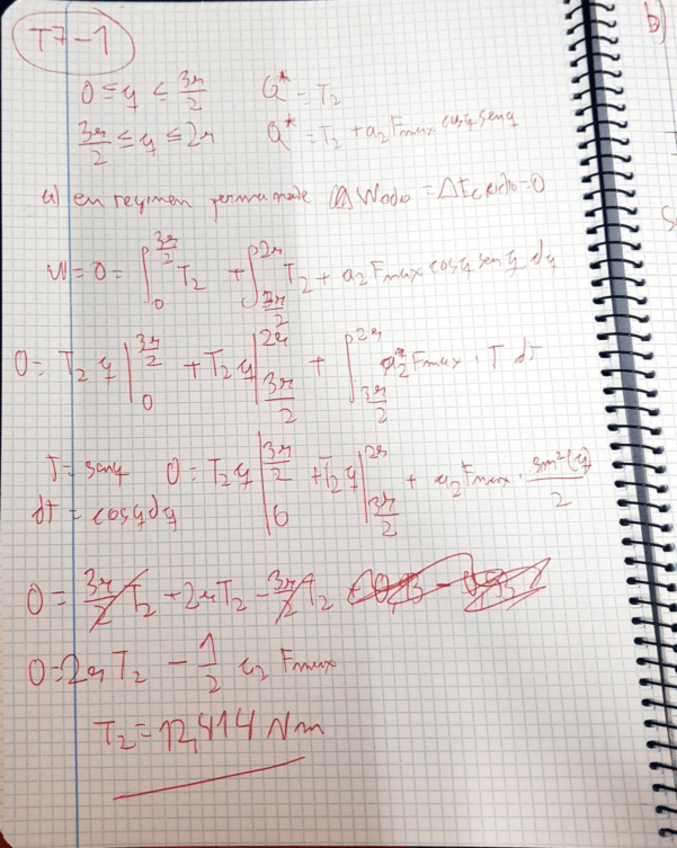 T7-1
0 ≤ φ ≤ 3π/2 Q* = T₂
3π/2 ≤ φ ≤ 2π Q* = T₂ + a₂ Fmax cosφ senφ
a) en regimen permanente Wciclo = ΔEc ciclo = 0
W = 0 = ∫₀^{3π/2} T₂ + ∫_{3π/2}^{2π} T₂ + a₂ Fmax cosφ senφ dφ
0 = T₂ φ |₀^{3π/2} + T₂ φ |_{3π/2}^{2π} + ∫_{3π/2}^{2π} a₂ Fmax · T dT
T = senφ 0 = T₂ φ |₀^{3π/2} + T₂ φ |_{3π/2}^{2π} + a₂ Fmax · sen²(φ)/2
dT = cosφ dφ
0 = 3π/2 T₂ + 2π T₂ - 3π/2 T₂
0 = 2π T₂ - 1/2 a₂ Fmax
T₂ = 12,414 Nm
b)